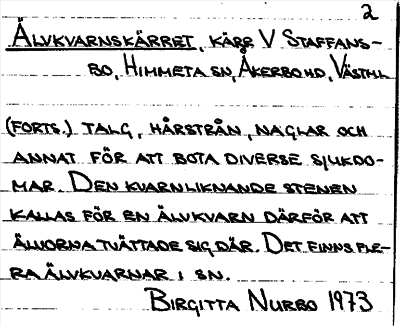 2
ÄLVKVARNSKÄRRET, KÄRR V STAFFANS-
BO, HIMMETA SN, ÅKERBO HD, VÄSTML
(FORTS.) TALG, HÅRSTRÅN, NAGLAR OCH
ANNAT FÖR ATT BOTA DIVERSE SJUKDO-
MAR. DEN KVARNLIKNANDE STENEN
KALLAS FÖR EN ÄLVKVARN DÄRFÖR ATT
ÄLVORNA TVÄTTADE SIG DÄR. DET FINNS FLE-
RA ÄLVKVARNAR I SN.
BIRGITTA NURBO 1973